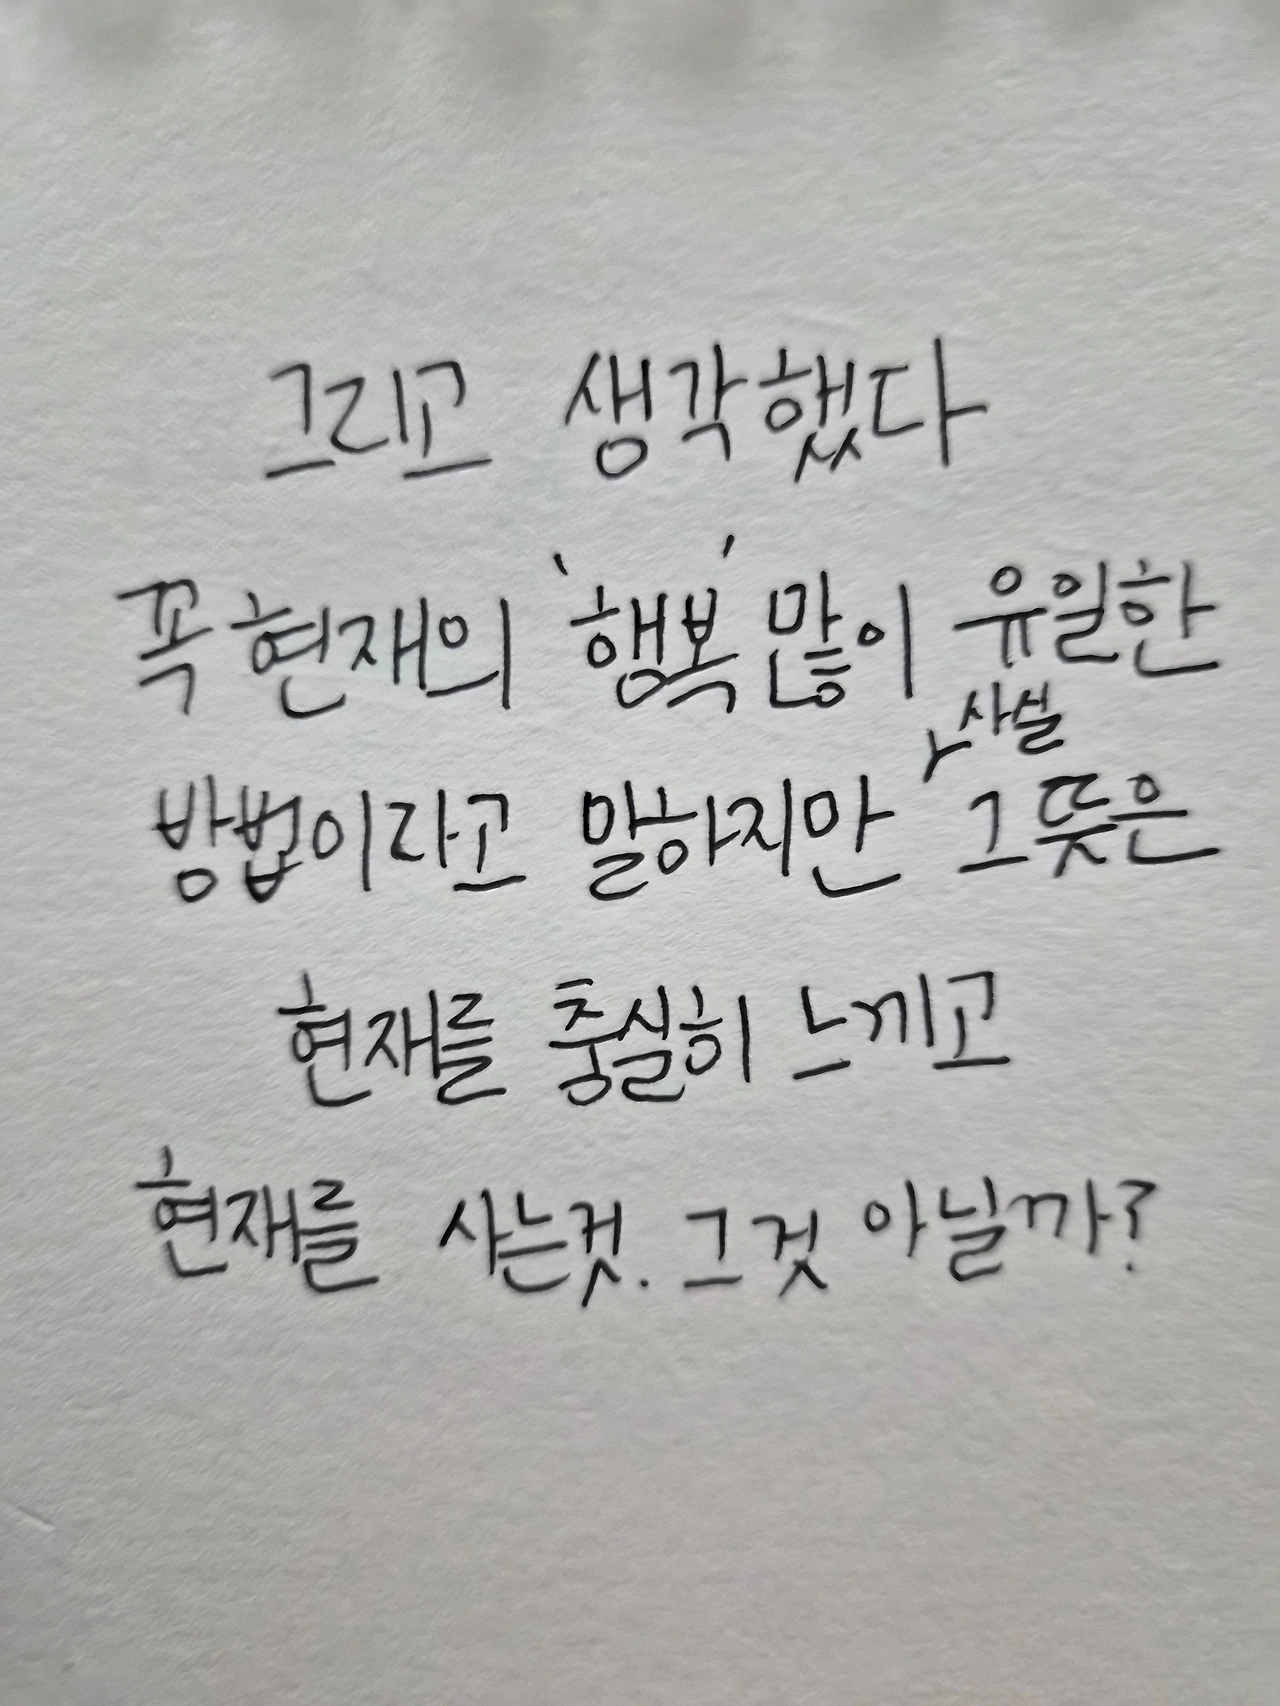 그리고 생각했다
꼭 현재의 '행복'많이 유일한
방법이라고 말하지만 사실 그 뜻은
현재를 충실히 느끼고
현재를 사는것. 그것 아닐까?